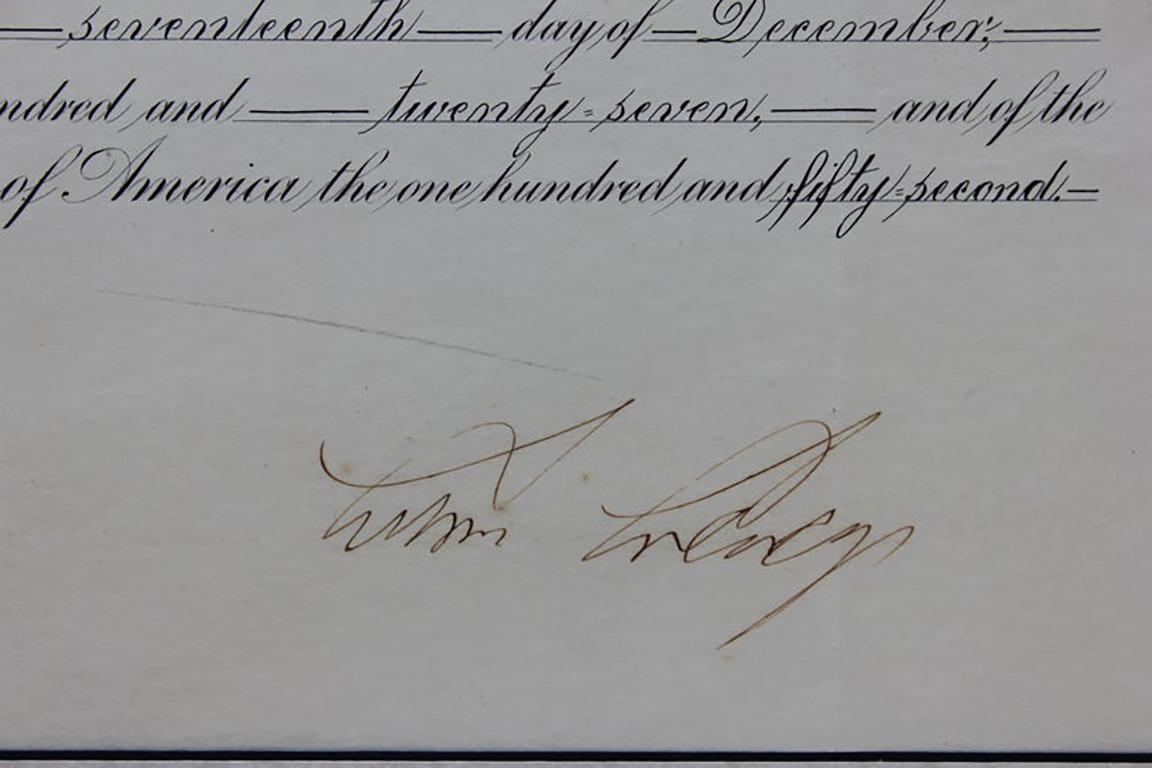 seventeenth day of December,
ndred and twenty-seven, and of the
of America the one hundred and fifty-second.
Calvin Coolidge